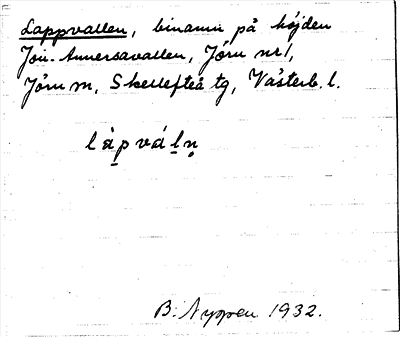 Lappvallen, binamn på höjden
Jon-Annersavallen, Jörn nr 1,
Jörn m, Skellefteå tg, Västerb. l.
làpváḷṇ
B. Nyppen 1932.